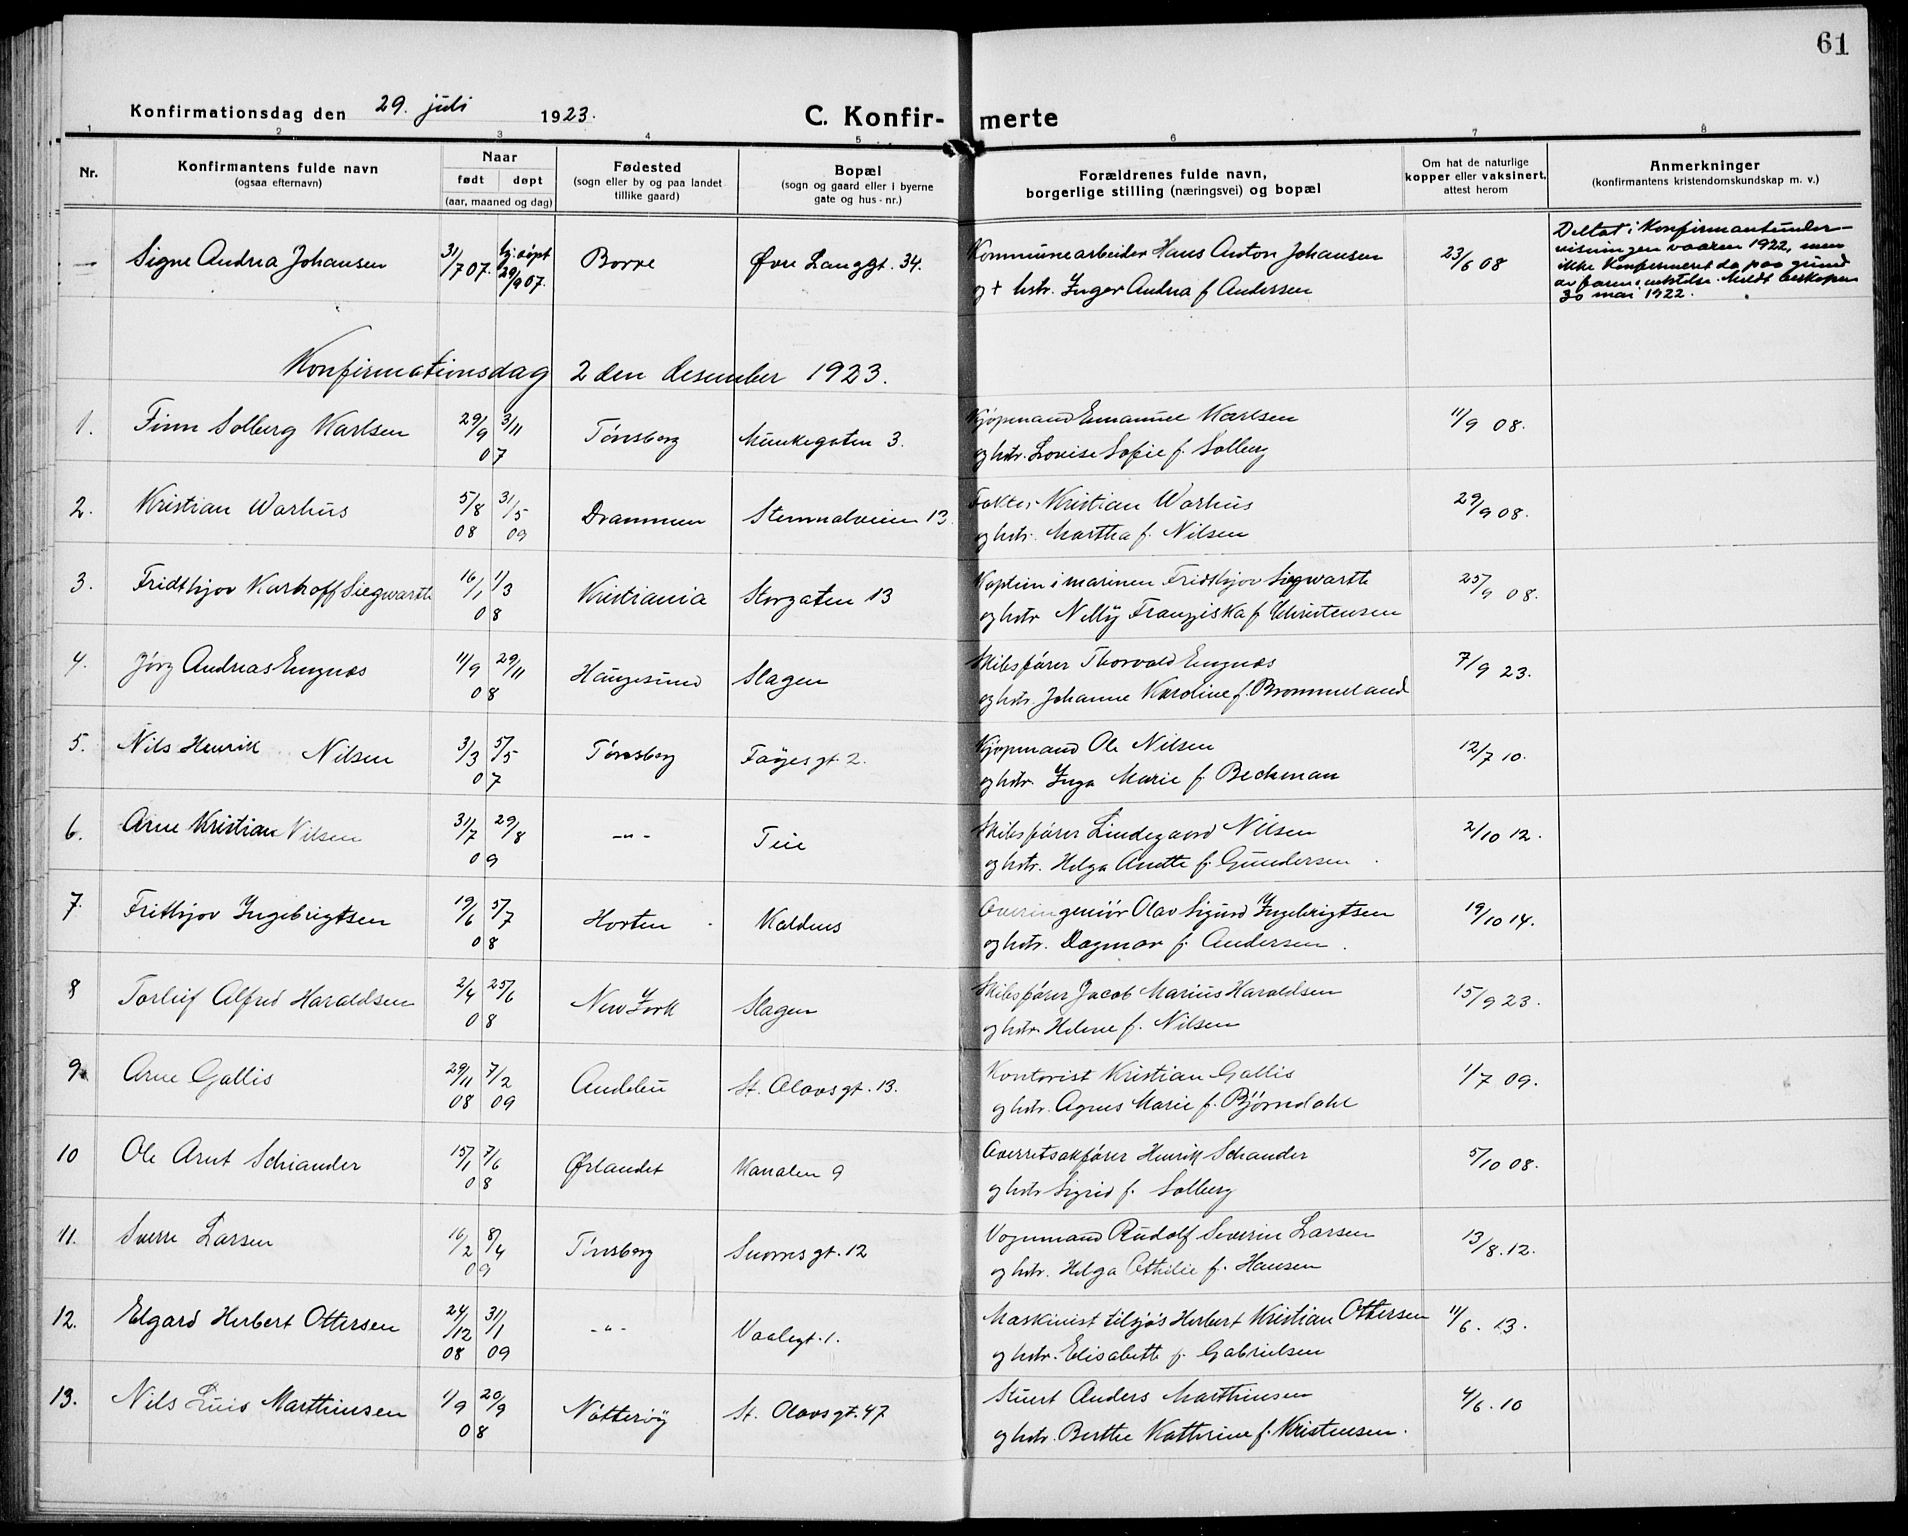 61
Konfirmationsdag den 29. juli 1923.
C. Konfir- merte
1 2 3 4 5 6 7 8
Nr.
Konfirmantens fulde navn
(ogsaa efternavn)
Naar
født døpt
(aar, maaned og dag)
Fødested
(sogn eller by og paa landet
tillike gaard)
Bopæl
(sogn og gaard eller i byerne
gate og hus-nr.)
Forældrenes fulde navn,
borgerlige stilling (næringsvei) og bopæl
Om hat de naturlige
kopper eller vaksinert,
attest herom
Anmerkninger
(konfirmantens kristendomskundskap m. v.)
— Signe Andrea Johansen 31/7 07. hj. døpt 29/9 07. Borre Øvre Langgt. 34. Kommunearbeider Hans Anton Johansen 23/6 08
og + hstr. Inger Andrea f. Andersen
Deltat i Konfirmantunder-
visningen vaaren 1922, men
ikke Konfirmeret da paa grund
av farens Meldt biskopen
30 mai 1922.
Konfirmationsdag 2den desember 1923.
1. Finn Solberg Karlsen 29/9 3/11 Tønsberg Munkegaten 3. Kjøpmand Emanuel Karlsen 11/9 08.
07 og hstr. Lovise Sofie f. Solberg
2. Kristian Warhus 5/8 31/5 Drammen Stenmalveien 13. Faktor Kristian Warhus 29/9 08.
08 09 og hstr. Martha f. Nilsen
3. Fridthjov Karhoff Siegwarth 16/1 1/3 Kristiania Storgaten 13 Kaptein i marinen Fridthjov Siegwarth 25/9 08.
08 og hstr Nelly Franziska f. Christensen
4. Jørg Andreas Engnæs 11/9 29/11 Haugesund Slagen Skibsfører Thorvald Engnæs 7/9 23.
08 og hstr. Johanne Karoline f. Brommeland
5. Nils Henrik Nilsen 3/3 5/5 Tønsberg Føyesgt 2. Kjøpmand Ole Nilsen 12/7 10.
07 og hstr. Inga Marie f. Beckman
6. Arne Kristian Nilsen 31/7 29/8 -"- Teie Skibsfører Lindegaard Nilsen 2/10 12.
09 og hstr. Helga Anette f. Gundersen
7. Frithjov Ingebrigtsen 19/6 5/7 Horten Kaldnes Overingeniør Olav Sigurd Ingebrigtsen 19/10 14.
08 og hstr. Dagmar f. Andersen.
8 Torleif Alfred Haraldsen 2/4 25/6 New York Slagen Skibsfører Jacob Marius Haraldsen 15/9 23.
08 og hstr. Helene f. Nilsen
9. Arne Gallis 29/11 7/2 Andebu St. Olavsgt. 13. Kontorist Kristian Gallis 1/7 09.
08 09 og hstr. Agnes Marie f. Bjørndahl
10 Ole Arnt Schiander 15/1 7/6 Ørlandet Kanalen 9 Overretsakfører Henrik Schander 5/10 08.
08 og hstr Sigrid f. Solberg
11. Sverre Larsen 16/2 8/4 Tønsberg Snorresgt. 12 Vognmand Rudolf Severin Larsen 13/8. 12.
09 og hstr. Helga Othilie f. Hansen
12. Elgard Herbert Ottersen 24/12 31/1 -"- Vaalegt. 1. Maskinist tilsjøs Herbert Kristian Ottersen 11/6. 13.
08 09 og hstr. Elisabeth f. Gabrielsen
13. Nils Luis Marthinsen 1/9 20/9 Nøtterøy St. Olavsgt. 47 Stuert Anders Marthinsen 4/6. 10
08 og hstr. Berthe Kathrine f. Kristensen.